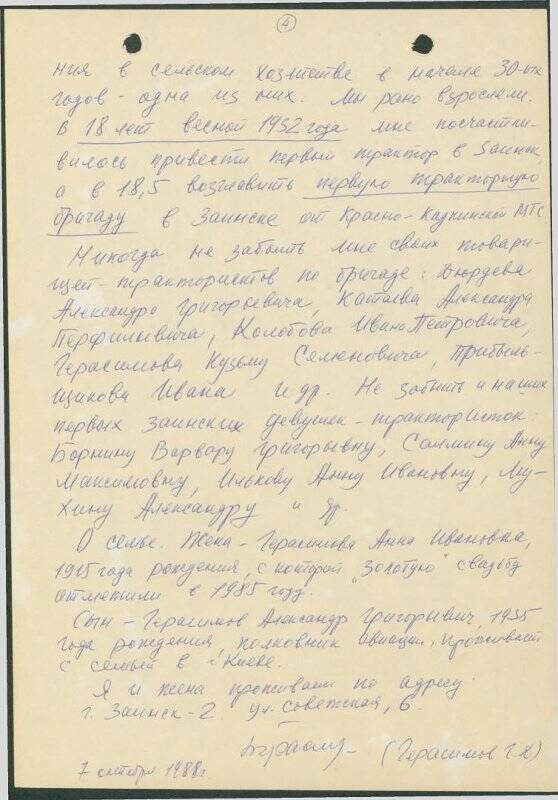 4
ния в сельском хозяйстве в начале 30-ых
годов - одна из них. Мы рано взрослели.
В 18 лет весной 1932 года мне посчастли-
вилось привести первый трактор в Заинск,
а в 18,5 возглавить первую тракторную
бригаду в Заинске от Красно-Кадкинской МТС
Никогда не забыть мне своих товари-
щей-трактористов по бригаде:
Александра Григорьевича, Катаева Александра
Перфильевича, Колобова Ивана Петровича,
Герасимова Кузьму Семеновича, Прибыль-
щикова Ивана и др. Не забыть и наших
первых заинских девушек-трактористок:
Варвару Григорьевну, Салмину Анну
Максимовну, Илькову Анну Ивановну, Му-
хину Александру и др.
О семье. Жена - Герасимова Анна Ивановна,
1915 года рождения, с которой "Золотую" свадьбу
отметили в 1985 году.
Сын - Герасимов Александр Григорьевич, 1935
года рождения, полковник авиации, проживает
с семьей в г. Киеве.
Я и жена проживаем по адресу:
г. Заинск-2 ул. Советская, 6.
(Герасимов Г.Х)
7 октября 1988г